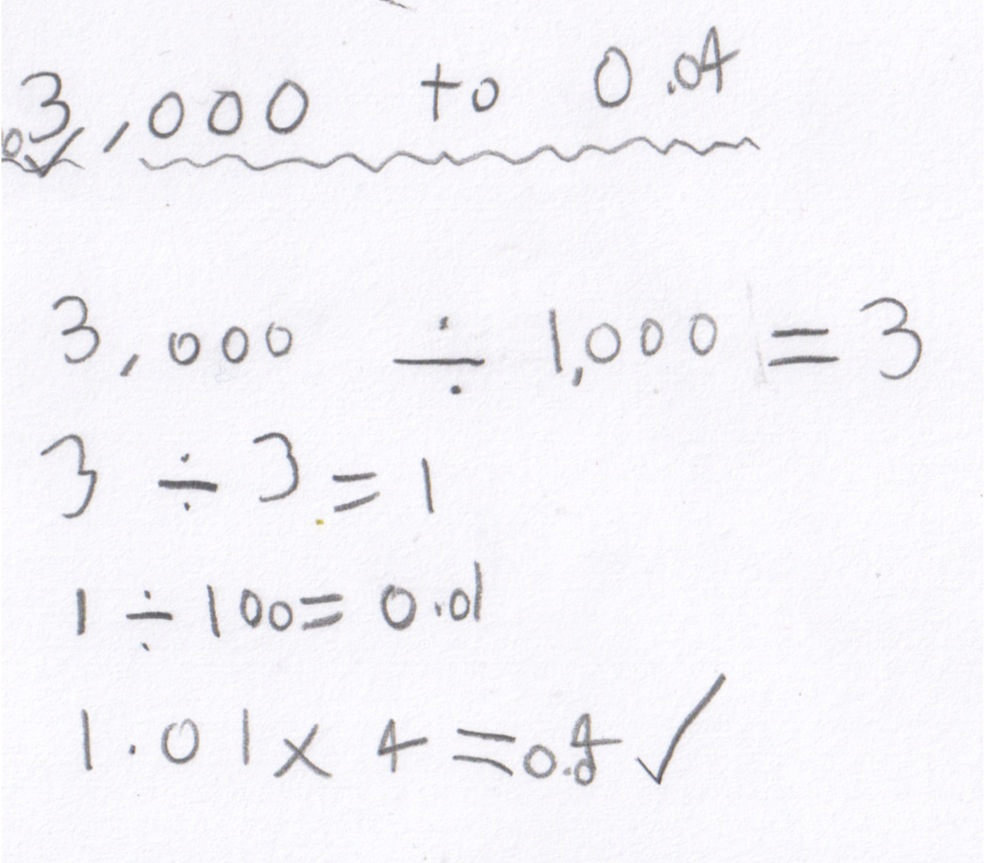 3,000 to 0.04
3,000 ÷ 1,000 = 3
3 ÷ 3 = 1
1 ÷ 100 = 0.01
1.01 x 4 =